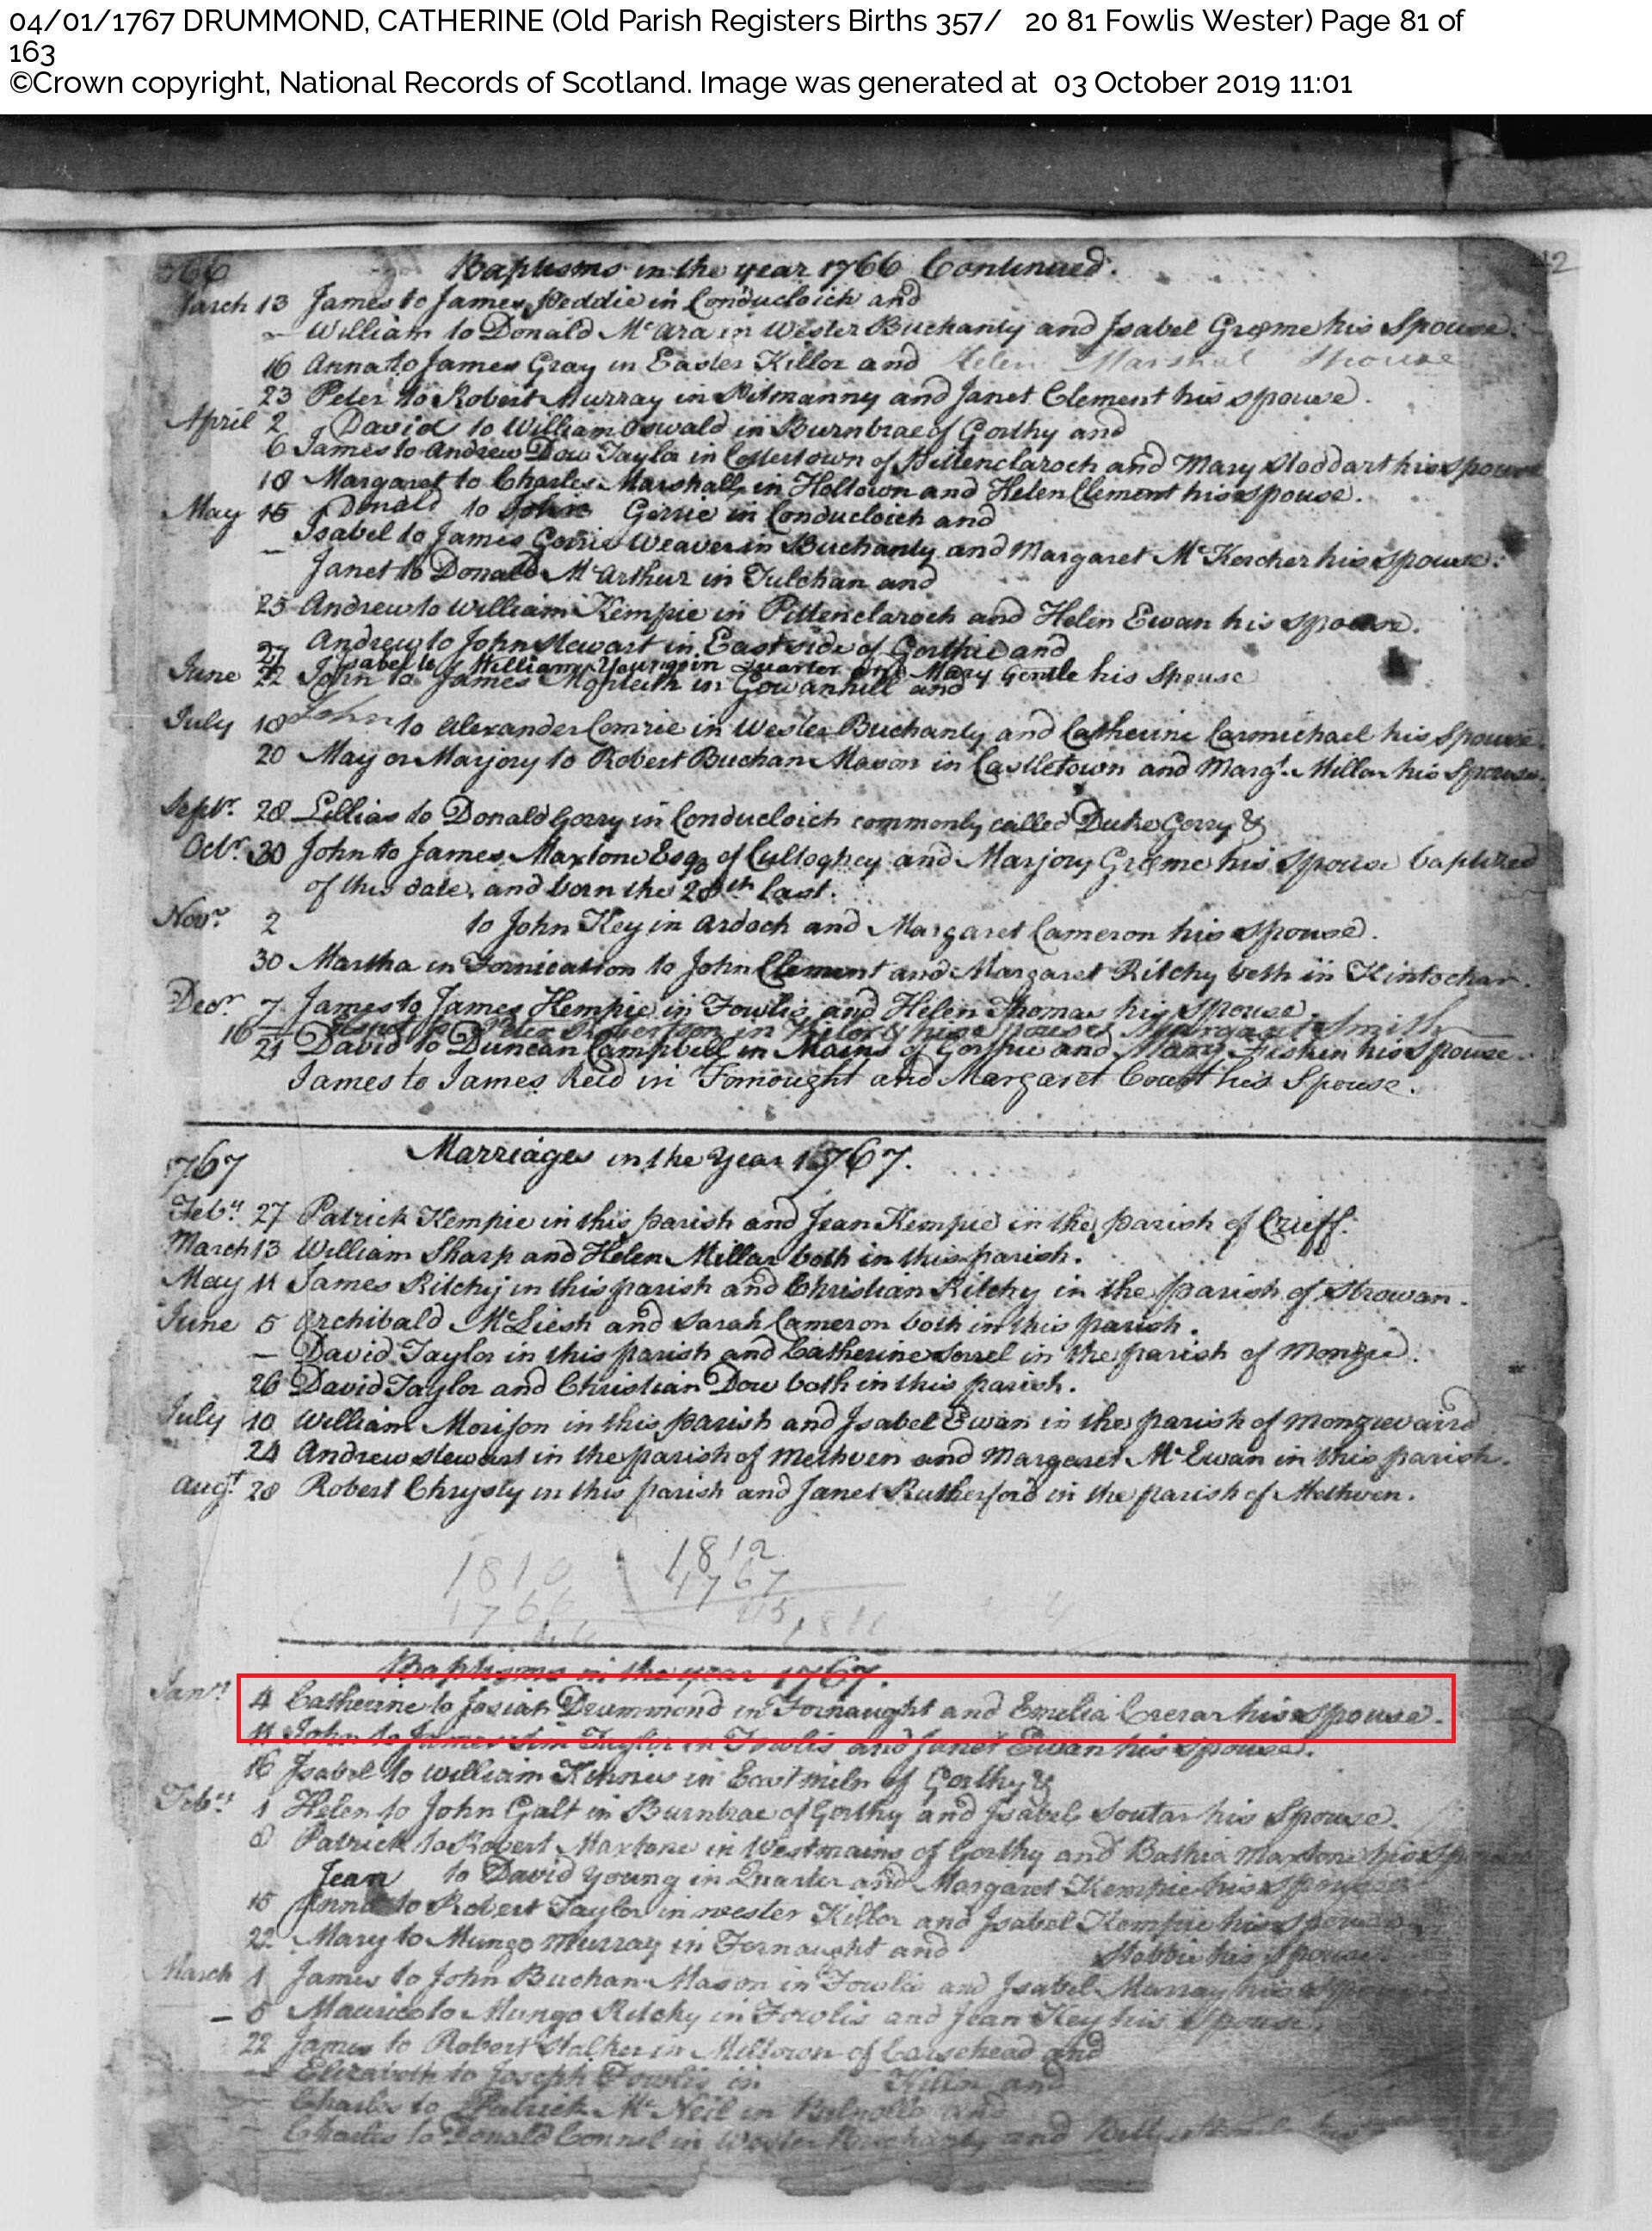 04/01/1767 DRUMMOND, CATHERINE (Old Parish Registers Births 357/ 20 81 Fowlis Wester) Page 81 of
163
©Crown copyright, National Records of Scotland. Image was generated at 03 October 2019 11:01
Baptisms in the year 1766 Continued.
March 13 James to James Peddie in Conducloich and
— William to Donald McAra in Wester Buchanty and Isabel Græme his Spouse.
16 Anna to James Gray in Easter Killor and Helen Marshal Spouse
23 Peter to Robert Murray in Pitmanny and Janet Clement his spouse.
April 2 David to William Oswald in Burnbrae of Gorthy and
6 James to Andrew Dow Taylor in of Pittenclaroch and Mary Stoddart his spouse
18 Margaret to Charles Marshall in Holtown and Helen Clement his spouse.
May 15 Donald to John Gorrie in Conducloich and
— Isabel to James Gorrie Weaver in Buchanty and Margaret McKercher his spouse.
Janet to Donald McArthur in Tulchan and
25 Andrew to William Kempie in Pittenclaroch and Helen Ewan his spouse.
Andrew to John Stewart in Eastside of Gorthie and
27 Isabel to William Young in Quarter and Mary Gentle his Spouse
June 22 John to James Monteith in Gowanhill and
July 18 John to Alexander Comrie in Wester Buchanty and Catherine Carmichael his Spouse.
20 May or Marjory to Robert Buchan Mason in Castletown and Margt. Millar his Spouse.
Septr. 28 Lillias to Donald Gorry in Conducloich commonly called Duke Gorry &
Octr. 30 John to James Maxtone Esqr of Cultoqhey and Marjory Græme his Spouse baptized
of this date, and born the 28th last.
Novr. 2 to John Key in Ardoch and Margaret Cameron his spouse.
30 Martha in Fornication to John Clement and Margaret Ritchy both in Kintochar.
Decr. 7 James to James Kempie in Fowlis and Helen Thomas his Spouse.
16 to Peter Robertson in Killor & his spouse Margaret Smith
21 David to Duncan Campbell in Mains of Gorthie and Mary Fisken his Spouse.
James to James Reid in Fornought and Margaret Coutt his Spouse.
1767 Marriages in the Year 1767.
Feby. 27 Patrick Kempie in this parish and Jean Kempie in the parish of Crieff.
March 13 William Sharp and Helen Millar both in this parish.
May 11 James Ritchy in this parish and Christian Ritchy in the parish of Strowan.
June 5 Archibald McLiesh and Sarah Cameron both in this parish.
— David Taylor in this parish and Catherine Sorrel in the parish of Monzie.
26 David Taylor and Christian Dow both in this parish.
July 10 William Morison in this parish and Isabel Ewan in the parish of Monzievaird
24 Andrew Stewart in the parish of Methven and Margaret McEwan in this parish.
Augt. 28 Robert Chrysty in this parish and Janet Rutherford in the parish of Methven.
1810 1812
1766 1767
45 1811
Baptisms in the year 1767.
Janry. 4 Catherine to Josiah Drummond in Fornaught and Emelia Crerar his spouse.
11 John to James Sim Taylor in Fowlis and Janet Ewan his spouse.
16 Isabel to William in Eastmiln of Gorthy &
Feby. 1 Helen to John Galt in Burnbrae of Gorthy and Isabel Soutar his Spouse.
8 Patrick to Robert Maxtone in Westmains of Gorthy and Bathia Maxtone his Spouse
Jean to David Young in Quarter and Margaret Kempie his Spouse
15 Anna to Robert Taylor in wester Killor and Isabel Kempie his Spouse
22 Mary to Mungo Murray in Fornaught and Stobbie his Spouse.
March 1 James to John Buchan Mason in Fowlis and Isabel Murray his Spouse
— 8 Maurice to Mungo Ritchy in Fowlis and Jean Key his Spouse.
22 James to Robert Stalker in Miltown of Carsehead and
— Elizabeth to Joseph Fowlis in Killin and
— Charles to Patrick McNeil in and
— Charles to Donald Connel in Wester Buchanty and